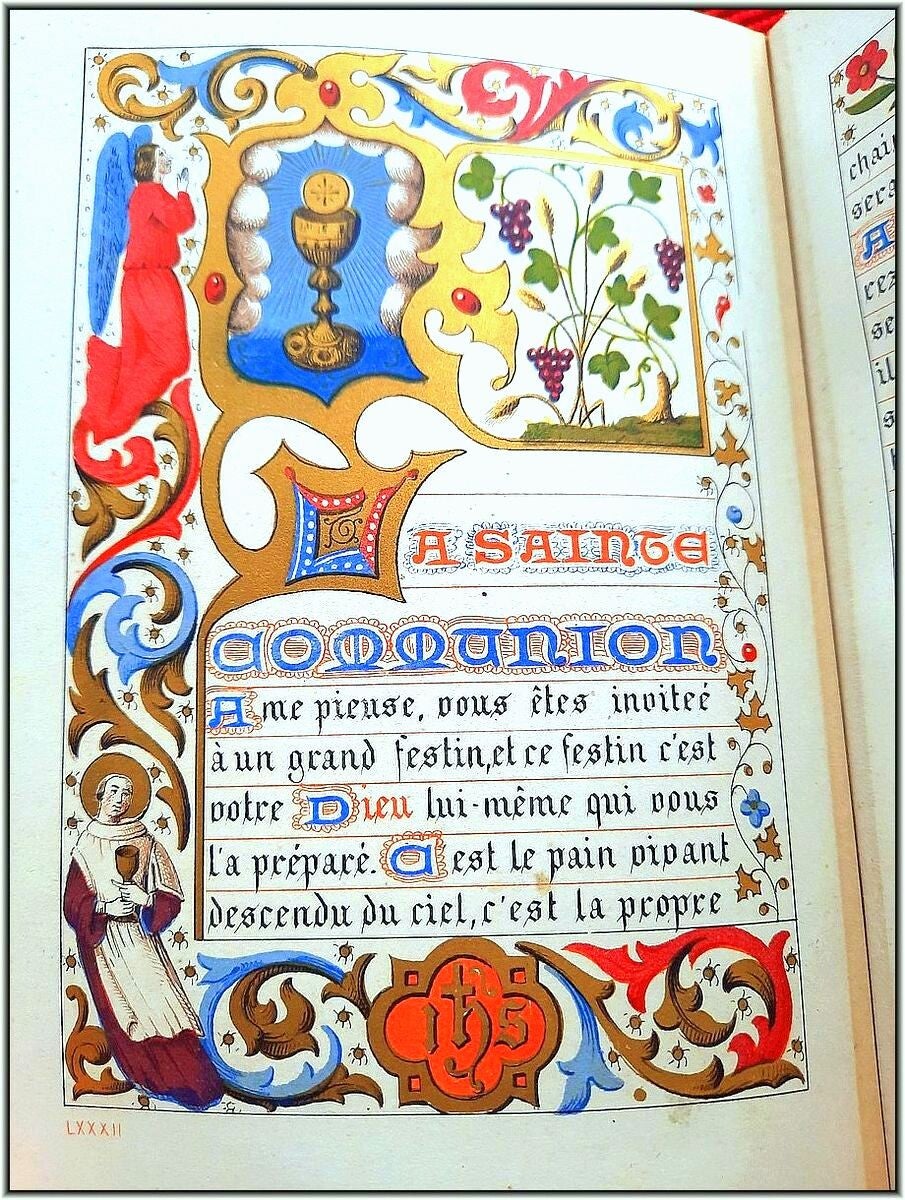 LA SAINTE
COMMUNION
Ame pieuse, vous êtes inviteé
à un grand festin, et ce festin c'est
votre Dieu lui-même qui vous
l'a préparé. C'est le pain vivant
descendu du ciel, c'est la propre
ihs
LXXXII
chai
sera
A
rez
se
il
s